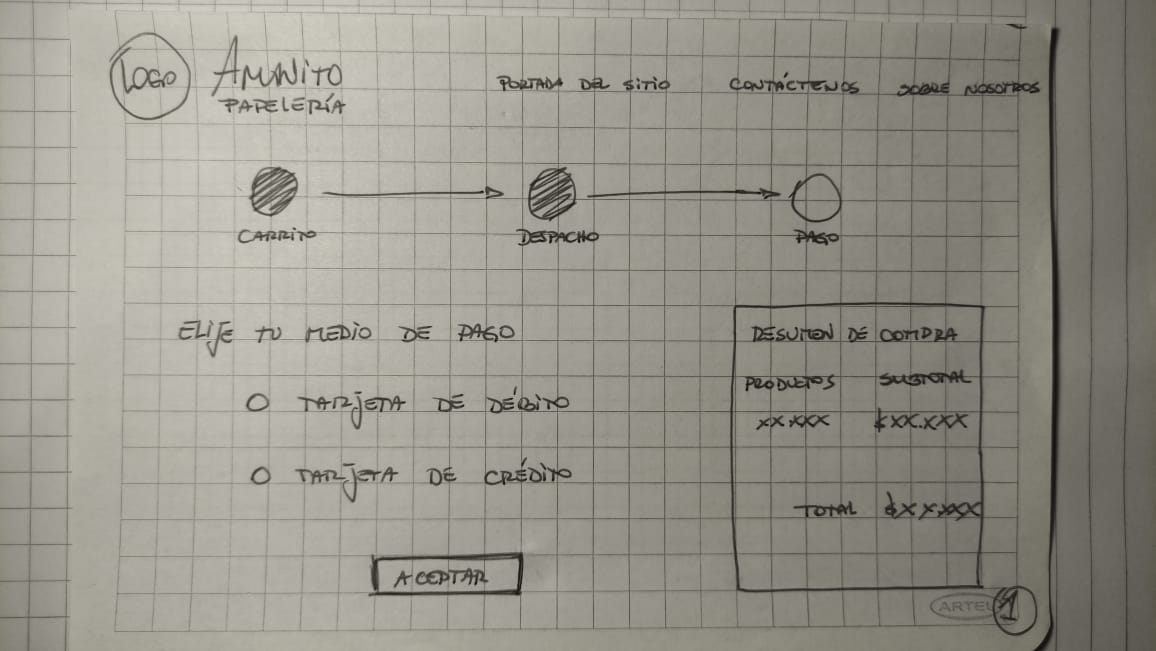 LOGO
AMUNITO
PAPELERÍA
PORTADA DEL SITIO
CONTÁCTENOS
SOBRE NOSOTROS
CARRITO
DESPACHO
PAGO
ELIJE TU MEDIO DE PAGO
TARJETA DE DÉBITO
TARJETA DE CRÉDITO
ACEPTAR
RESUMEN DE COMPRA
PRODUCTOS SUBTOTAL
XX.XXX $XX.XXX
TOTAL $XX.XXX
ARTEL
1